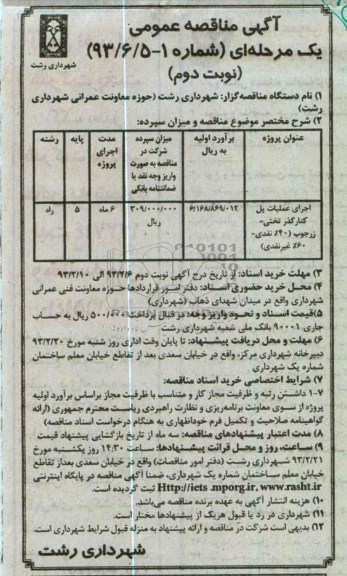 آگهی مناقصه عمومی
یک مرحله‌ای (شماره ۱-۹۳/۶/۵)
(نوبت دوم)
شهرداری رشت
۱) نام دستگاه مناقصه‌گزار: شهرداری رشت (حوزه معاونت عمرانی شهرداری
رشت)
۲) شرح مختصر موضوع مناقصه و میزان سپرده:
عنوان پروژه
برآورد اولیه
به ریال
میزان سپرده
شرکت در
مناقصه به صورت
واریز وجه نقد یا
ضمانتنامه بانکی
مدت
اجرای
پروژه
پایه
رشته
اجرای عملیات پل
کنارگذر تختی-
زرجوب (۴۰٪ نقدی-
۶۰٪ غیرنقدی)
۶/۱۶۸/۸۶۹/۰۱۲
۳۰۹/۰۰۰/۰۰۰
ریال
۶ ماه
۵
راه
۳) مهلت خرید اسناد: از تاریخ درج آگهی نوبت دوم ۹۳/۲/۶ الی ۹۳/۲/۱۰
۴) محل خرید حضوری اسناد: دفتر امور قراردادها حوزه معاونت فنی عمرانی
شهرداری واقع در میدان شهدای ذهاب (شهرداری)
۵) قیمت اسناد و نحوه واریز وجه: در قبال پرداخت ۵۰۰/۰۰۰ ریال به حساب
جاری ۹۰۰۰۱ بانک ملی شعبه شهرداری رشت
۶) مهلت و محل دریافت پیشنهاد: تا پایان وقت اداری روز شنبه مورخ ۹۳/۲/۲۰
دبیرخانه شهرداری مرکز، واقع در خیابان سعدی بعد از تقاطع خیابان معلم ساختمان
شماره یک شهرداری
۷) شرایط اختصاصی خرید اسناد مناقصه:
۷-۱ داشتن رتبه و ظرفیت مجاز کار و متناسب با ظرفیت مجاز براساس برآورد اولیه
پروژه از سوی معاونت برنامه‌ریزی و نظارت راهبردی ریاست محترم جمهوری (ارائه
گواهینامه صلاحیت و تکمیل فرم خوداظهاری به هنگام درخواست اسناد مناقصه)
۸) مدت اعتبار پیشنهادهای مناقصه: سه ماه از تاریخ بازگشایی پیشنهاد قیمت
۹) ساعت، روز و محل قرائت پیشنهادها: ساعت ۱۴:۳۰ روز یکشنبه مورخ
۹۳/۲/۲۱ شهرداری رشت (دفتر امور مناقصات) واقع در خیابان سعدی بعد از تقاطع
خیابان معلم ساختمان شماره یک شهرداری، ضمناً آگهی مناقصه در پایگاه اینترنتی
Http://iets.mporg.ir, www.rasht.ir ثبت گردیده است.
۱۰) هزینه انتشار آگهی به عهده برنده مناقصه می‌باشد.
۱۱) شهرداری در رد یا قبول هریک از پیشنهادها مختار است.
۱۲) بدیهی است شرکت در مناقصه و ارائه پیشنهاد به منزله قبول شرایط شهرداری است.
شهرداری رشت